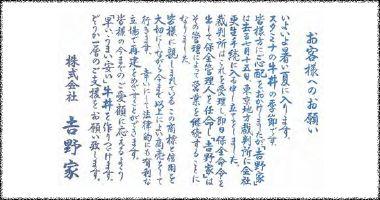 お客様へのお願い
いよいよ暑い夏に入ります。
スタミナの牛丼の季節です。
皆様方にご心配をおかけしましたが、吉野家
は去る七月十五日、東京地方裁判所に会社
更生手続に入る申し立てをしました。
裁判所はこれを受理し即日保全命令を
出して保全管理人を任命し、吉野家は
その管理によって営業を継続することに
なりました。
皆様に親しまれているこの商標と信用を
大切にしながら今まで以上によい商売をして
行きます。幸いにして法律的にも有利な
立場で再建をめざすことができます。
皆様の今までのご愛顧に応えるよう
「早い、うまい、安い」牛丼を作りつづけます。
どうか一層のご支援をお願い致します。
株式会社 吉野家